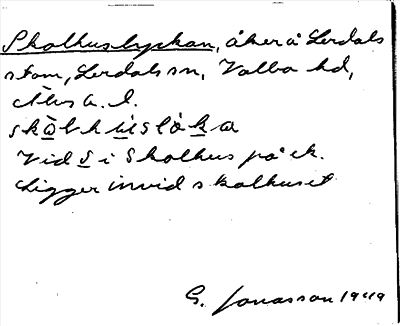 Skolhuslyckan, åker å Lerdals
stom, Lerdals sn, Valbo hd,
Älvs b. l.
Vid S i Skolhus på ek.
Ligger invid skolhuset
G. Jonasson 1949